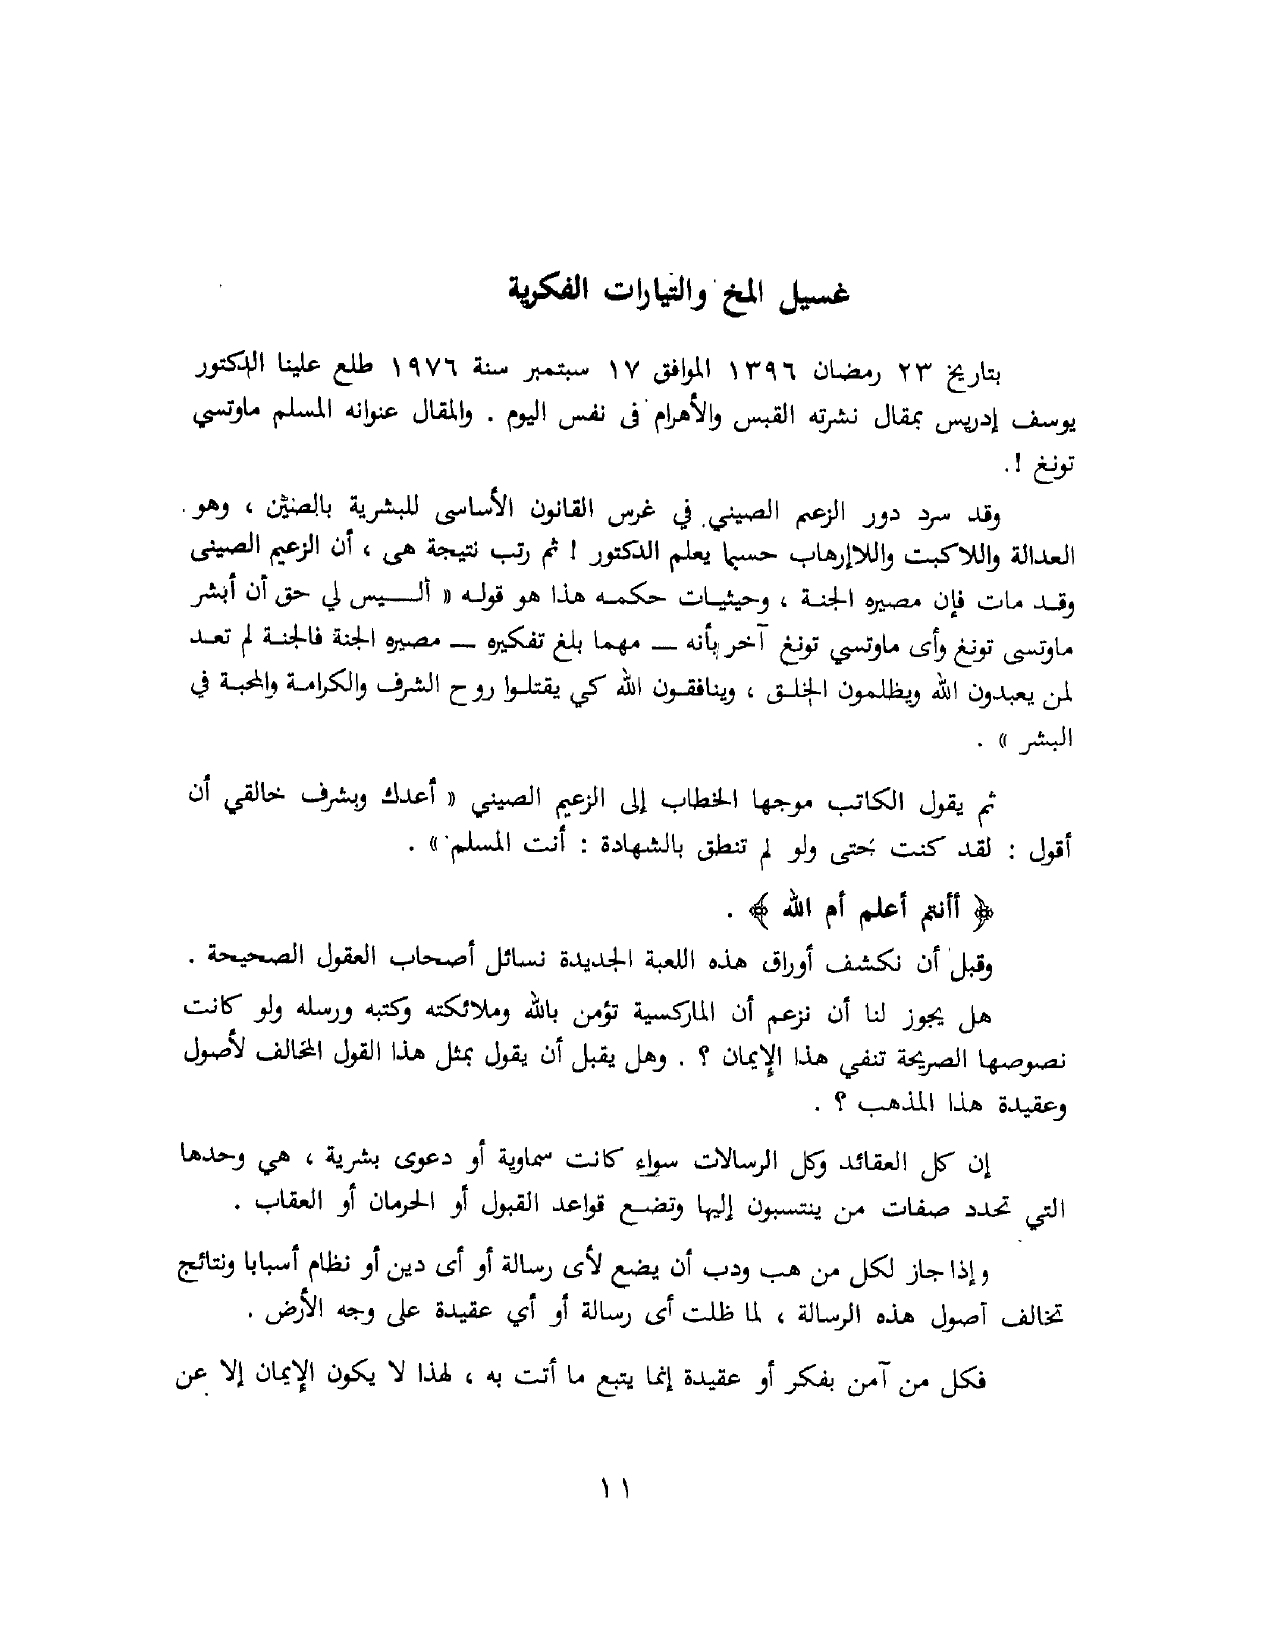 غسيل المخ والتيارات الفكرية
بتاريخ ٢٣ رمضان ١٣٩٦ الموافق ١٧ سبتمبر سنة ١٩٧٦ طلع علينا الدكتور
يوسف إدريس بمقال نشرته القبس والأهرام فى نفس اليوم . والمقال عنوانه المسلم ماوتسي
تونغ !.
وقد سرد دور الزعيم الصيني في غرس القانون الأساسى للبشرية بالصين ، وهو
العدالة واللاكبت واللاإرهاب حسبما يعلم الدكتور ! ثم رتب نتيجة هى ، أن الزعيم الصينى
وقد مات فإن مصيره الجنة ، وحيثيات حكمه هذا هو قوله « أليس لي حق أن أبشر
ماوتسى تونغ وأى ماوتسي تونغ آخر بأنه ــ مهما بلغ تفكيره ــ مصيره الجنة فالجنة لم تعد
لمن يعبدون الله ويظلمون الخلق ، وينافقون الله كي يقتلوا روح الشرف والكرامة والمحبة في
البشر » .
ثم يقول الكاتب موجها الخطاب إلى الزعيم الصيني « أعدك وبشرف خالقي أن
أقول : لقد كنت حتى ولو لم تنطق بالشهادة : أنت المسلم » .
﴿ أأنتم أعلم أم الله ﴾ .
وقبل أن نكشف أوراق هذه اللعبة الجديدة نسائل أصحاب العقول الصحيحة .
هل يجوز لنا أن نزعم أن الماركسية تؤمن بالله وملائكته وكتبه ورسله ولو كانت
نصوصها الصريحة تنفي هذا الإيمان ؟ . وهل يقبل أن يقول بمثل هذا القول المخالف لأصول
وعقيدة هذا المذهب ؟ .
إن كل العقائد وكل الرسالات سواء كانت سماوية أو دعوى بشرية ، هي وحدها
التي تحدد صفات من ينتسبون إليها وتضع قواعد القبول أو الحرمان أو العقاب .
وإذا جاز لكل من هب ودب أن يضع لأى رسالة أو أى دين أو نظام أسبابا ونتائج
تخالف أصول هذه الرسالة ، لما ظلت أى رسالة أو أي عقيدة على وجه الأرض .
فكل من آمن بفكر أو عقيدة إنما يتبع ما أتت به ، لهذا لا يكون الإيمان إلا عن
١١